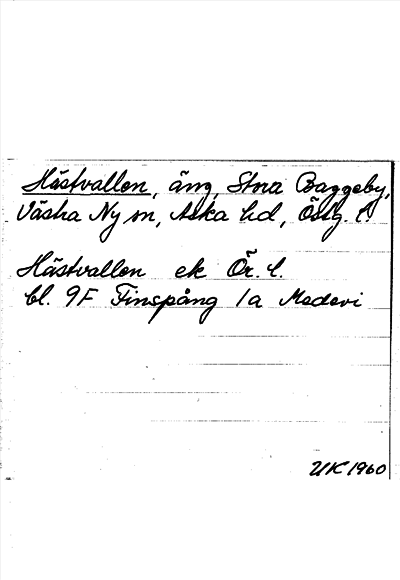 Hästvallen, äng, Stora Baggeby,
Västra Ny sn, Aska hd, Östg. l.
Hästvallen ek Ör. l.
bl. 9F Finspång 1a Medevi
UK 1960